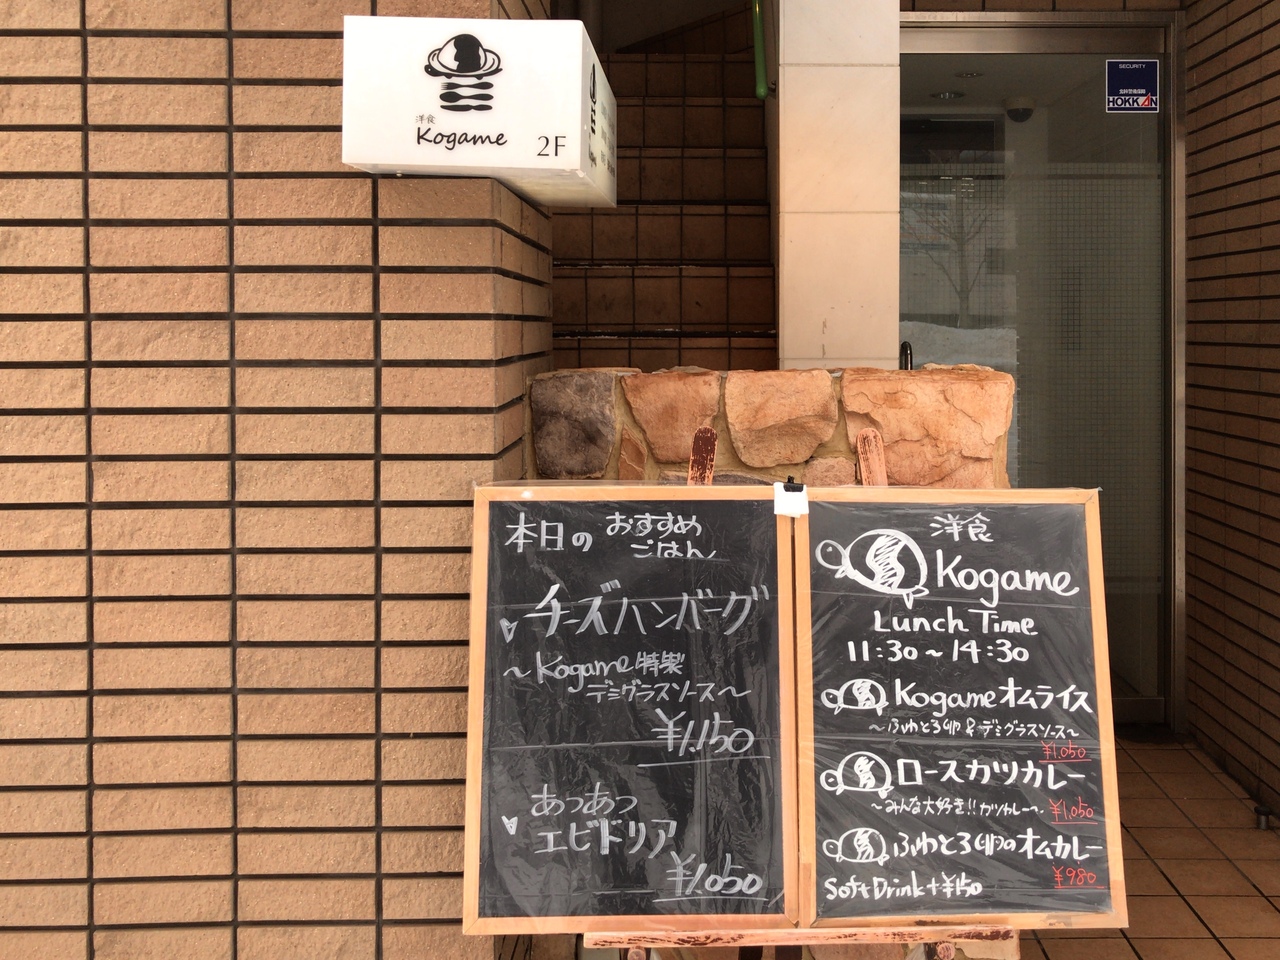 洋食
Kogame
2F
SECURITY
HOKKAN
本日の おすすめ
ごはん
チーズハンバーグ
〜Kogame特製
デミグラスソース〜
¥1,150
あつあつ
エビドリア
¥1,050
洋食
Kogame
Lunch Time
11:30〜14:30
Kogameオムライス
〜ふわとろ卵&デミグラスソース〜
¥1,050
ロースカツカレー
〜みんな大好き!!カツカレー〜
¥1,050
ふわとろ卵のオムカレー
¥980
Soft Drink+¥150